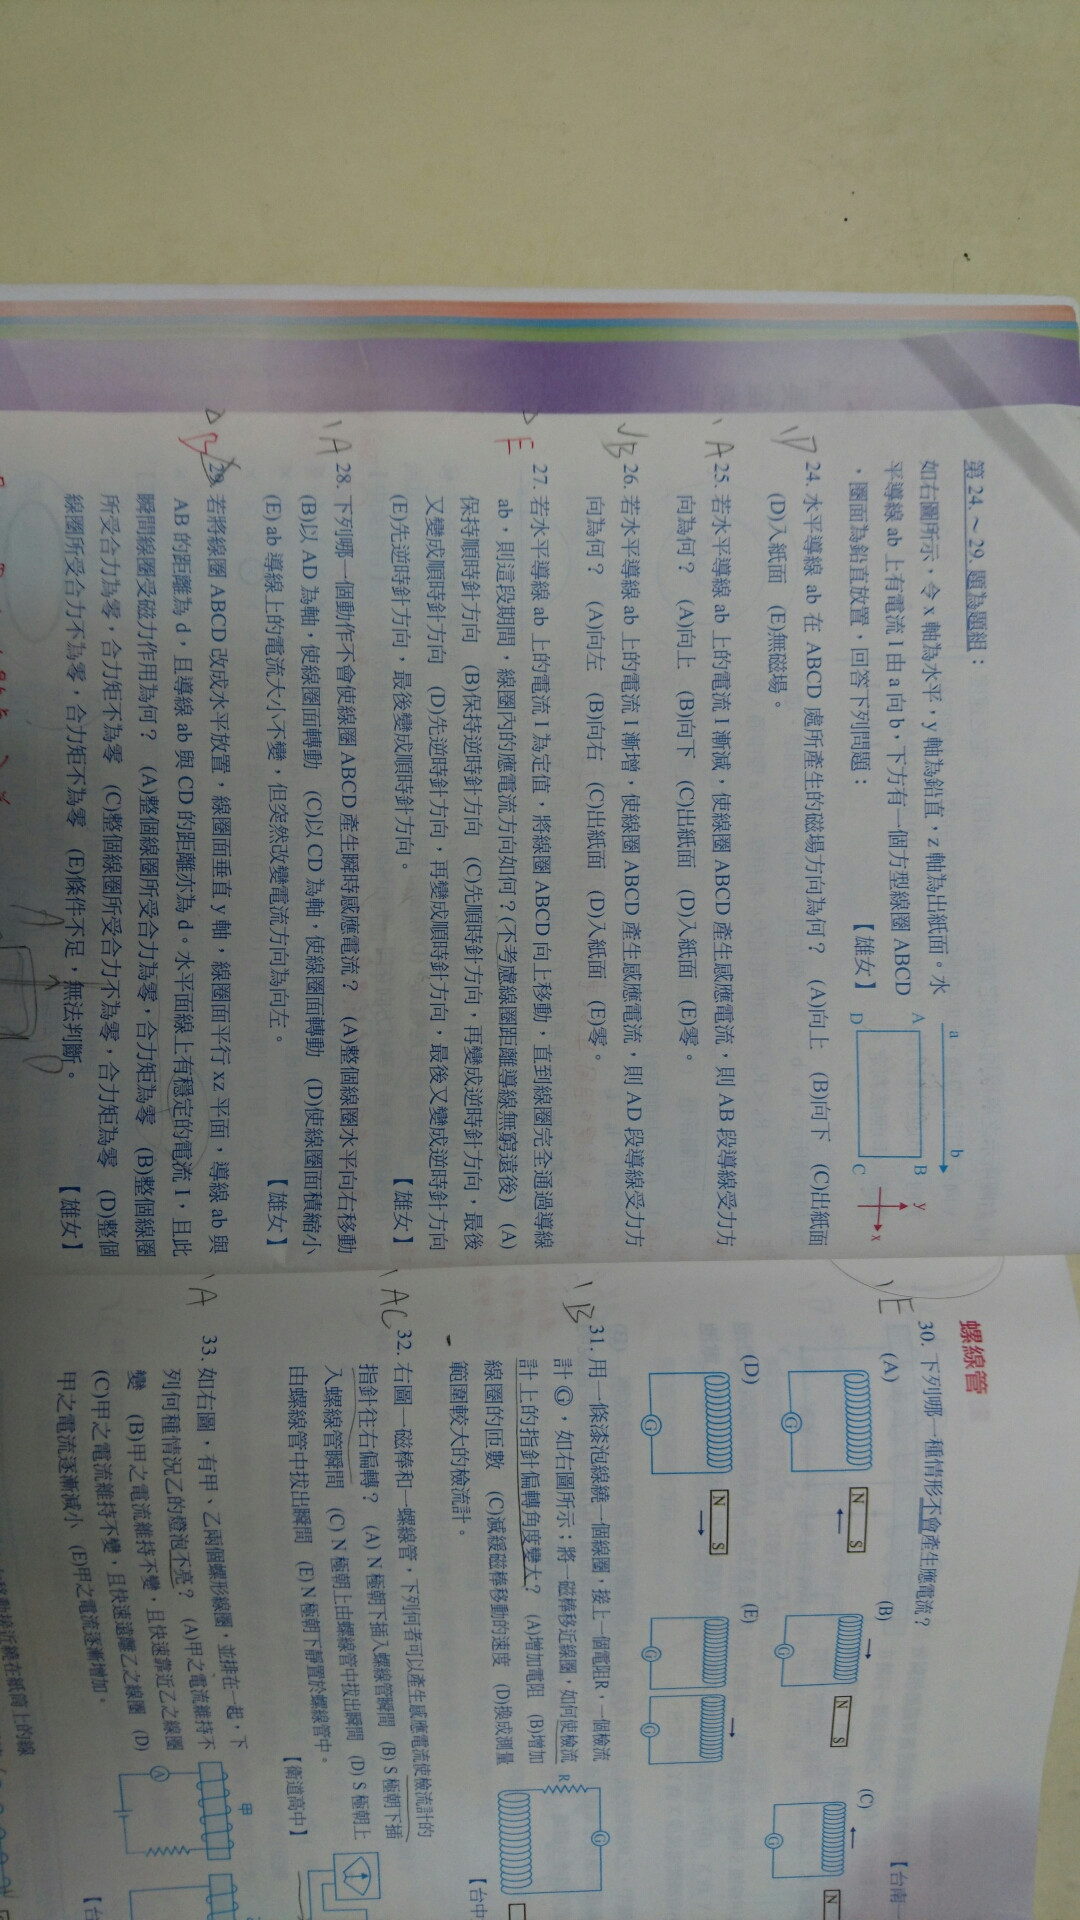 第 24. ~ 29. 題為題組：
如右圖所示，令 x 軸為水平，y 軸為鉛直，z 軸為出紙面。水
平導線 ab 上有電流 I 由 a 向 b，下方有一個方型線圈 ABCD
，圈面為鉛直放置，回答下列問題： 【雄女】
a b
A B
D C
y
x
D 24. 水平導線 ab 在 ABCD 處所產生的磁場方向為何？ (A)向上 (B)向下 (C)出紙面
(D)入紙面 (E)無磁場。
A 25. 若水平導線 ab 上的電流 I 漸減，使線圈 ABCD 產生感應電流，則 AB 段導線受力方
向為何？ (A)向上 (B)向下 (C)出紙面 (D)入紙面 (E)零。
B 26. 若水平導線 ab 上的電流 I 漸增，使線圈 ABCD 產生感應電流，則 AD 段導線受力方
向為何？ (A)向左 (B)向右 (C)出紙面 (D)入紙面 (E)零。
E 27. 若水平導線 ab 上的電流 I 為定值，將線圈 ABCD 向上移動，直到線圈完全通過導線
ab，則這段期間，線圈內的應電流方向如何？(不考慮線圈距離導線無窮遠後) (A)
保持順時針方向 (B)保持逆時針方向 (C)先順時針方向，再變成逆時針方向，最後
又變成順時針方向 (D)先逆時針方向，再變成順時針方向，最後又變成逆時針方向
(E)先逆時針方向，最後變成順時針方向。 【雄女】
A 28. 下列哪一個動作不會使線圈 ABCD 產生瞬時感應電流？ (A)整個線圈水平向右移動
(B)以 AD 為軸，使線圈面轉動 (C)以 CD 為軸，使線圈面轉動 (D)使線圈面積縮小
(E) ab 導線上的電流大小不變，但突然改變電流方向為向左。 【雄女】
B 29. 若將線圈 ABCD 改成水平放置，線圈面垂直 y 軸，線圈面平行 xz 平面，導線 ab 與
AB 的距離為 d，且導線 ab 與 CD 的距離亦為 d。水平面線上有穩定的電流 I，且此
瞬間線圈受磁力作用為何？ (A)整個線圈所受合力為零，合力矩為零 (B)整個線圈
所受合力為零，合力矩不為零 (C)整個線圈所受合力不為零，合力矩為零 (D)整個
線圈所受合力不為零，合力矩不為零 (E)條件不足，無法判斷。 【雄女】
螺線管
E 30. 下列哪一種情形不會產生應電流？ 【台南
(A) (B) (C)
N S
G
N S
G
N
G
(D) (E)
N S
G
G G
B 31. 用一條漆泡線繞一個線圈，接上一個電阻R，一個檢流
計 G，如右圖所示；將一磁棒移近線圈，如何使檢流
計上的指針偏轉角度變大？ (A)增加電阻 (B)增加
線圈的匝數 (C)減緩磁棒移動的速度 (D)換成測量
範圍較大的檢流計。 【台中
R G
AC 32. 右圖一磁棒和一螺線管，下列何者可以產生感應電流使檢流計的
指針往右偏轉？ (A) N 極朝下插入螺線管瞬間 (B) S 極朝下插
入螺線管瞬間 (C) N 極朝上由螺線管中拔出瞬間 (D) S 極朝上
由螺線管中拔出瞬間 (E) N 極朝下靜置於螺線管中。 【衛道高中】
A 33. 如右圖，有甲、乙兩個螺形線圈，並排在一起，下
列何種情況乙的燈泡不亮？ (A)甲之電流維持不
變 (B)甲之電流維持不變，且快速靠近乙之線圈
(C)甲之電流維持不變，且快速遠離乙之線圈 (D)
甲之電流逐漸減小 (E)甲之電流逐漸增加。 【台
甲
A